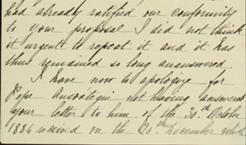 had already ratified our conformity
to your proposal I did not think
it urgent to repeat it and it has
thus remained so long unanswered.
I have now to apologise for
Pepe not having answered
your letter to him of the 20th October
1884 received on the